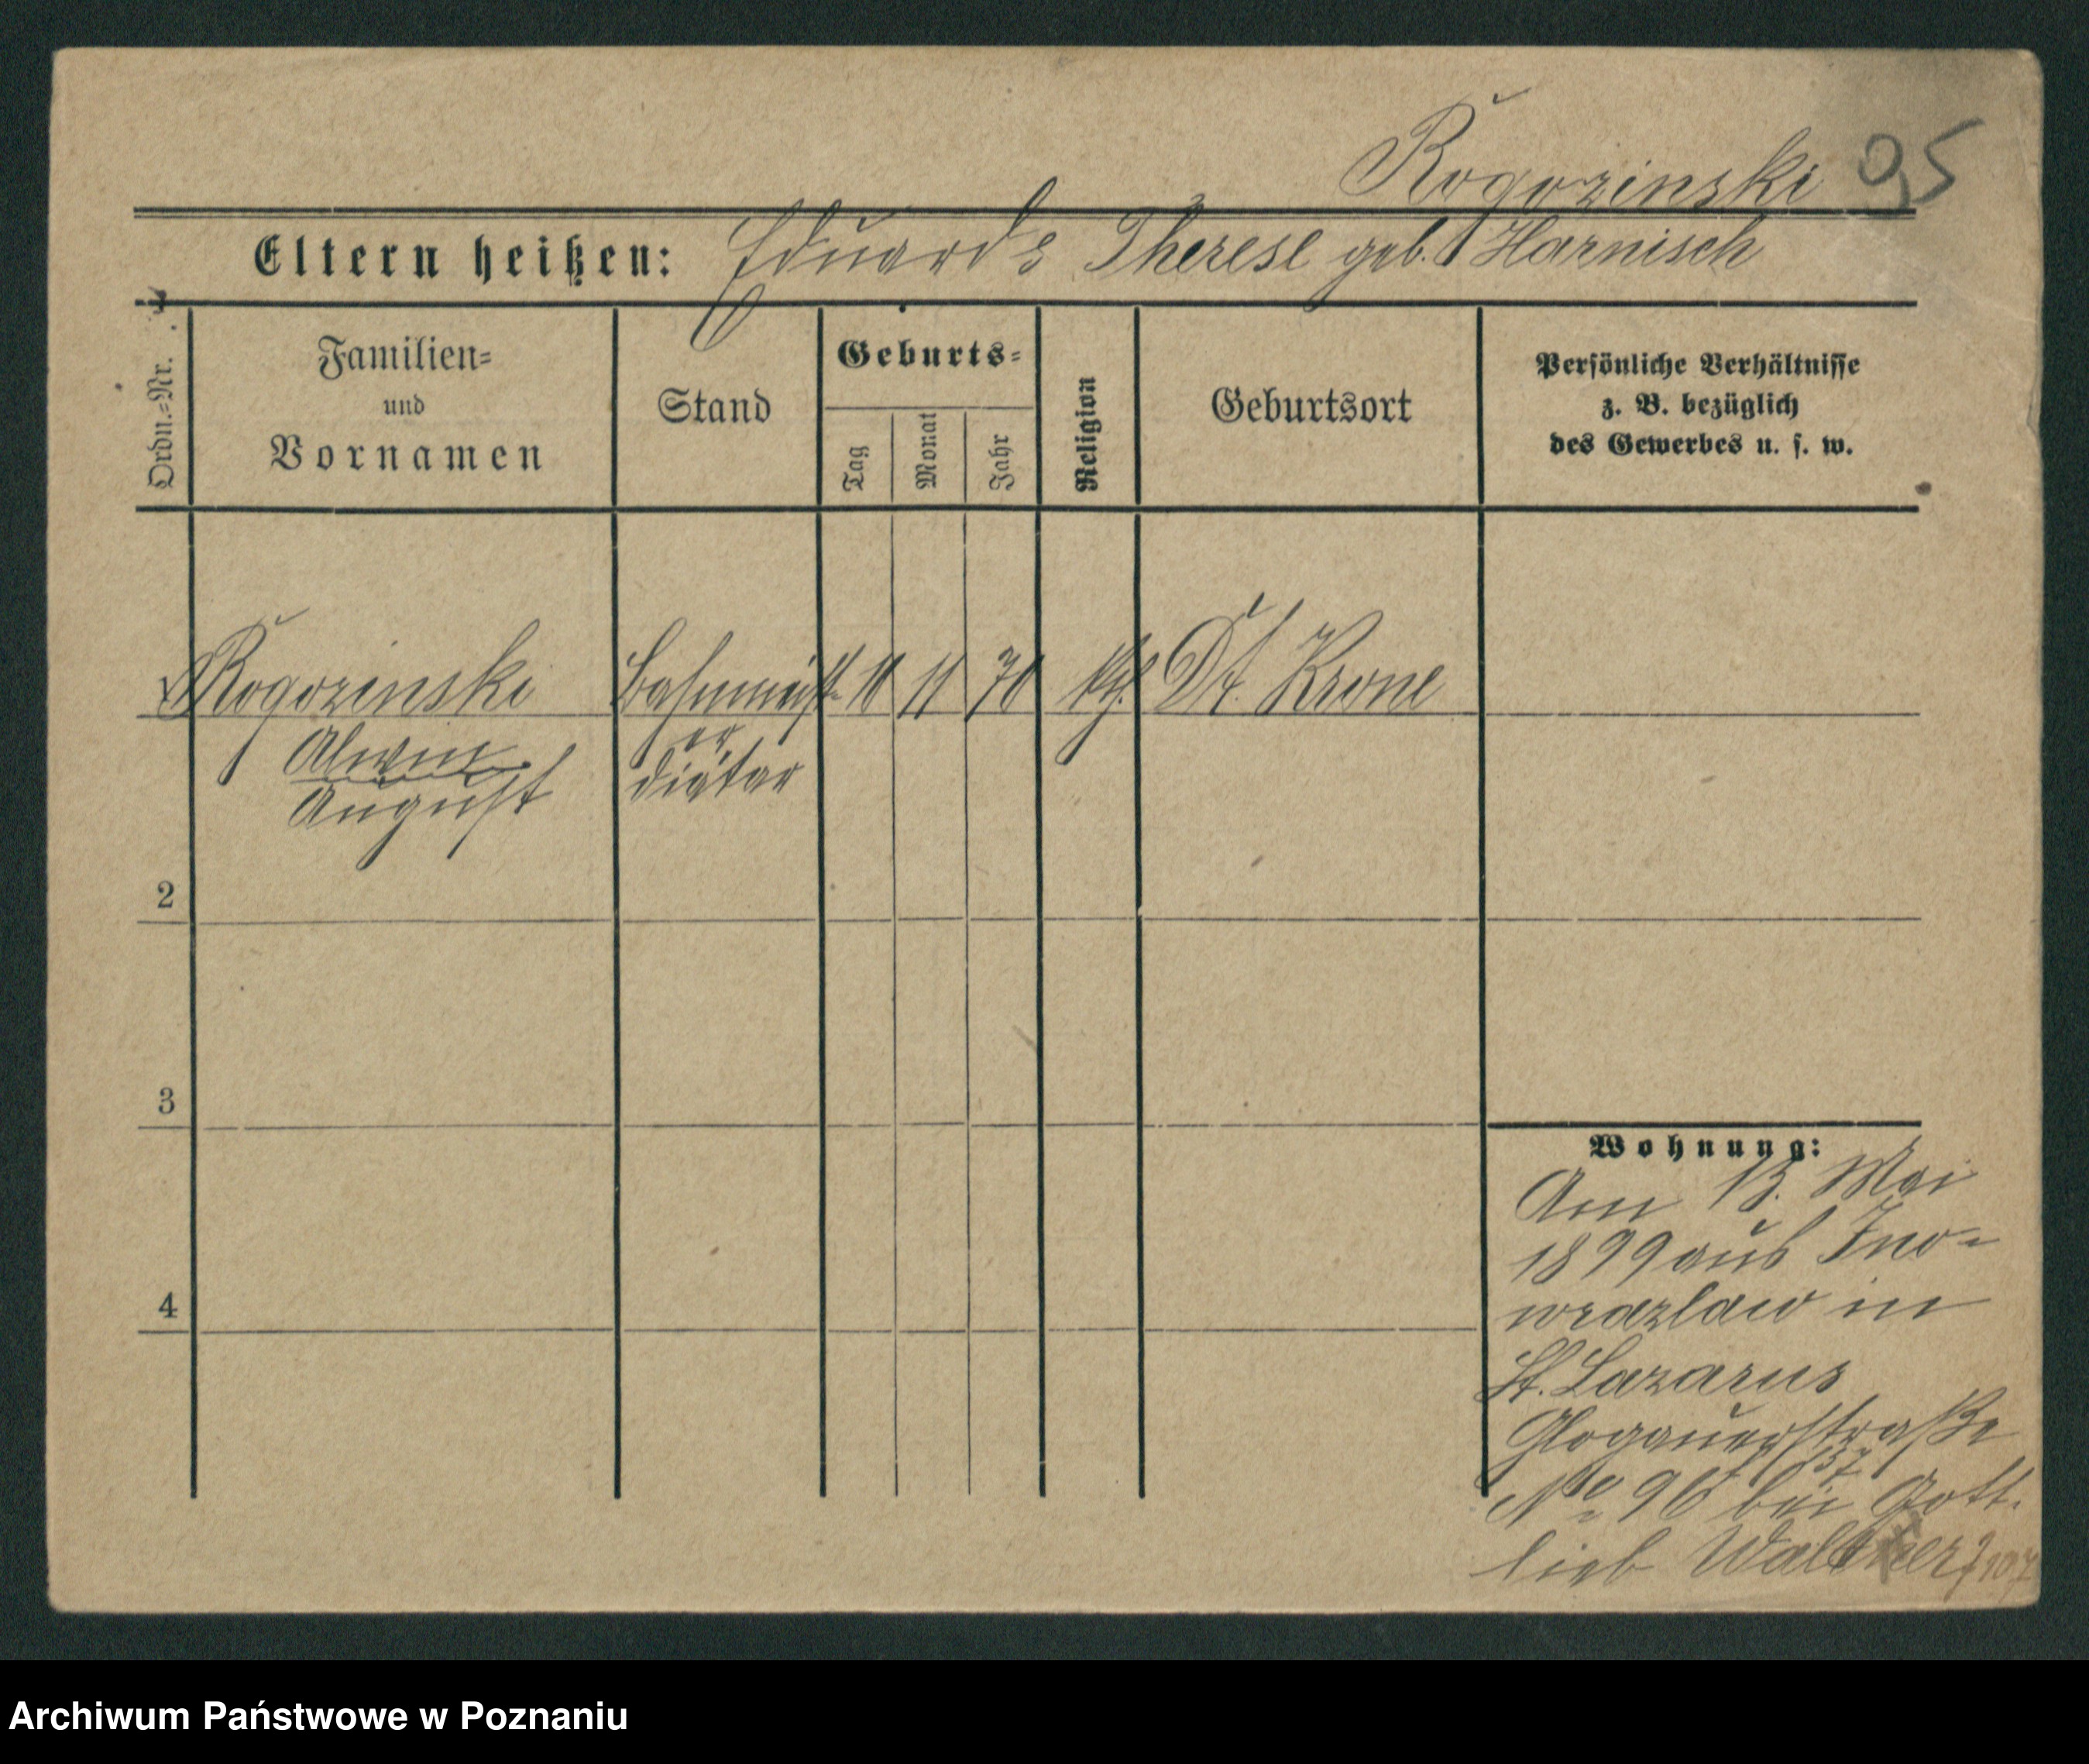 Rogozinski 0,5
Eltern heißen: Eduard & Therese geb. Harnisch
Ordn.-Nr.
Familien-
und
Vornamen
Stand
Geburts-
Tag
Monat
Jahr
Religion
Geburtsort
Persönliche Verhältnisse
z. B. bezüglich
des Gewerbes u. s. w.
Rogozinski Bahnmeist- 11 70 Dt. Krone
Alwin er
August diätar
2
3
4
Wohnung:
Am 13. Mai
1899 aus Ino-
wrazlaw in
St. Lazarus
Glogauerstraße
37
No 96 bei Gott-
lieb
Archiwum Państwowe w Poznaniu